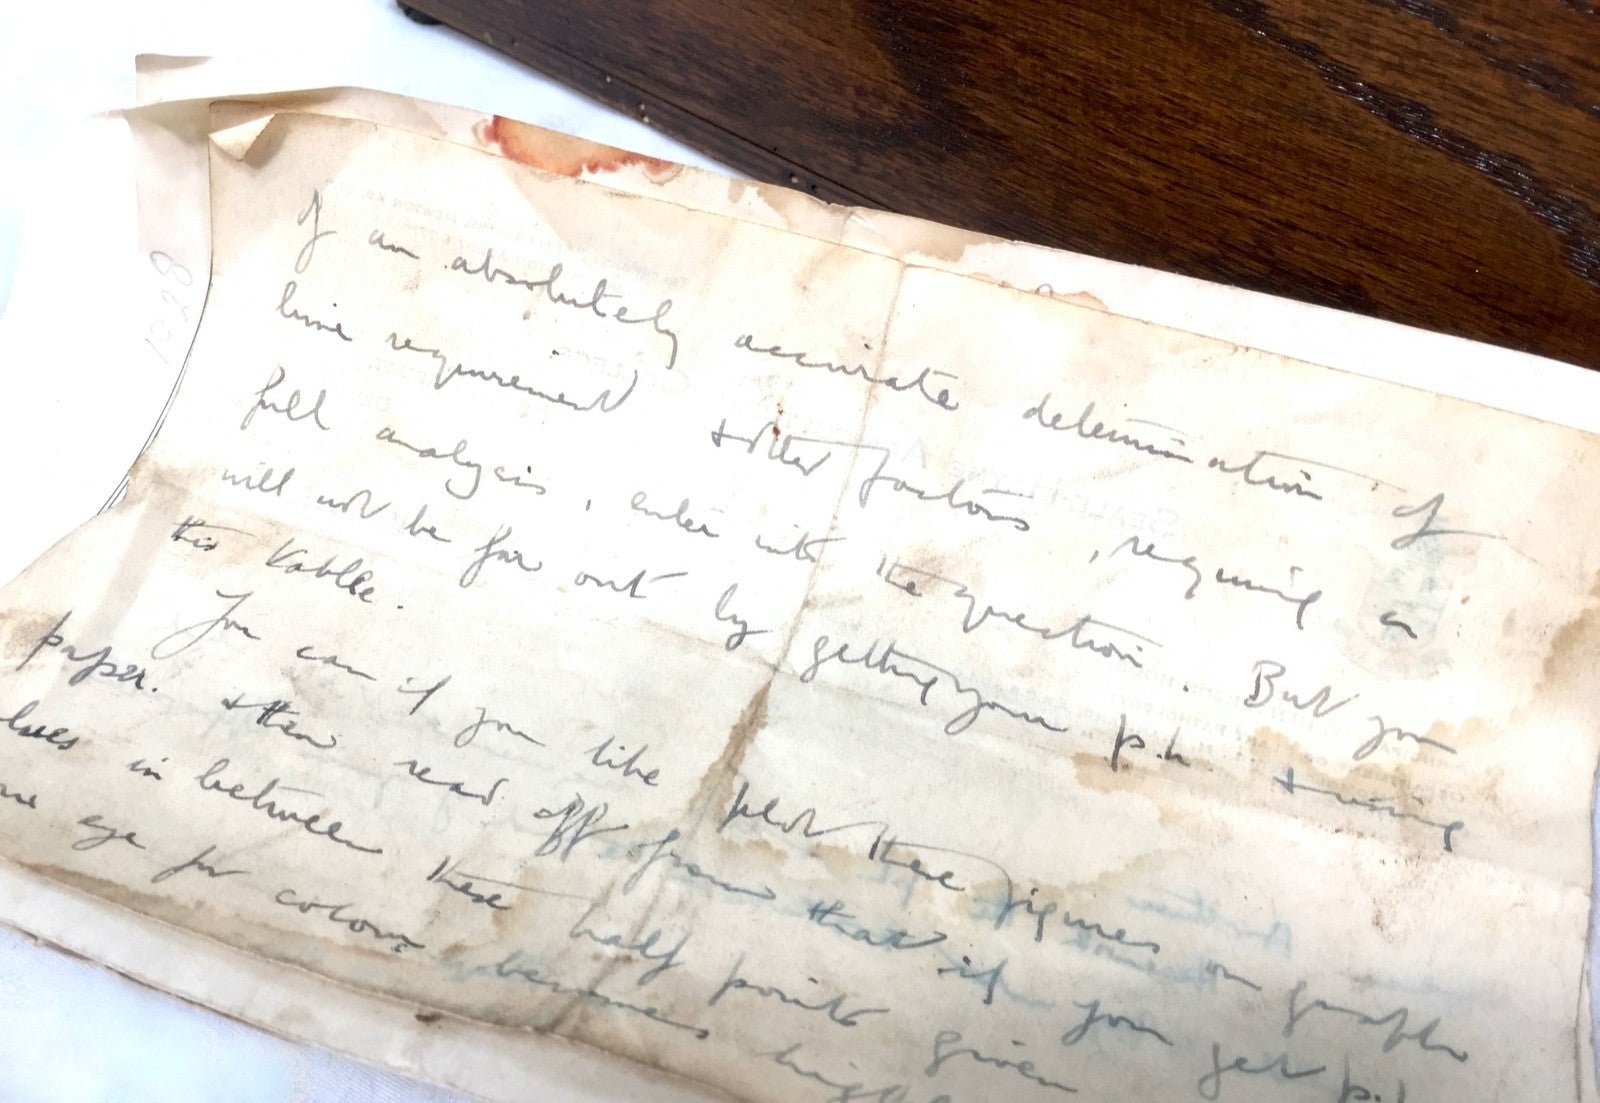 If an absolutely accurate determination of
lime requirement + other factors, requiring a
full analysis, enter into the question. But you
will not be far out by getting your p.h. + using
this table.
You can if you like plot these figures on graph
paper. + then read off from that if you get p.h
in between these half points given
eye for colour becomes
1928